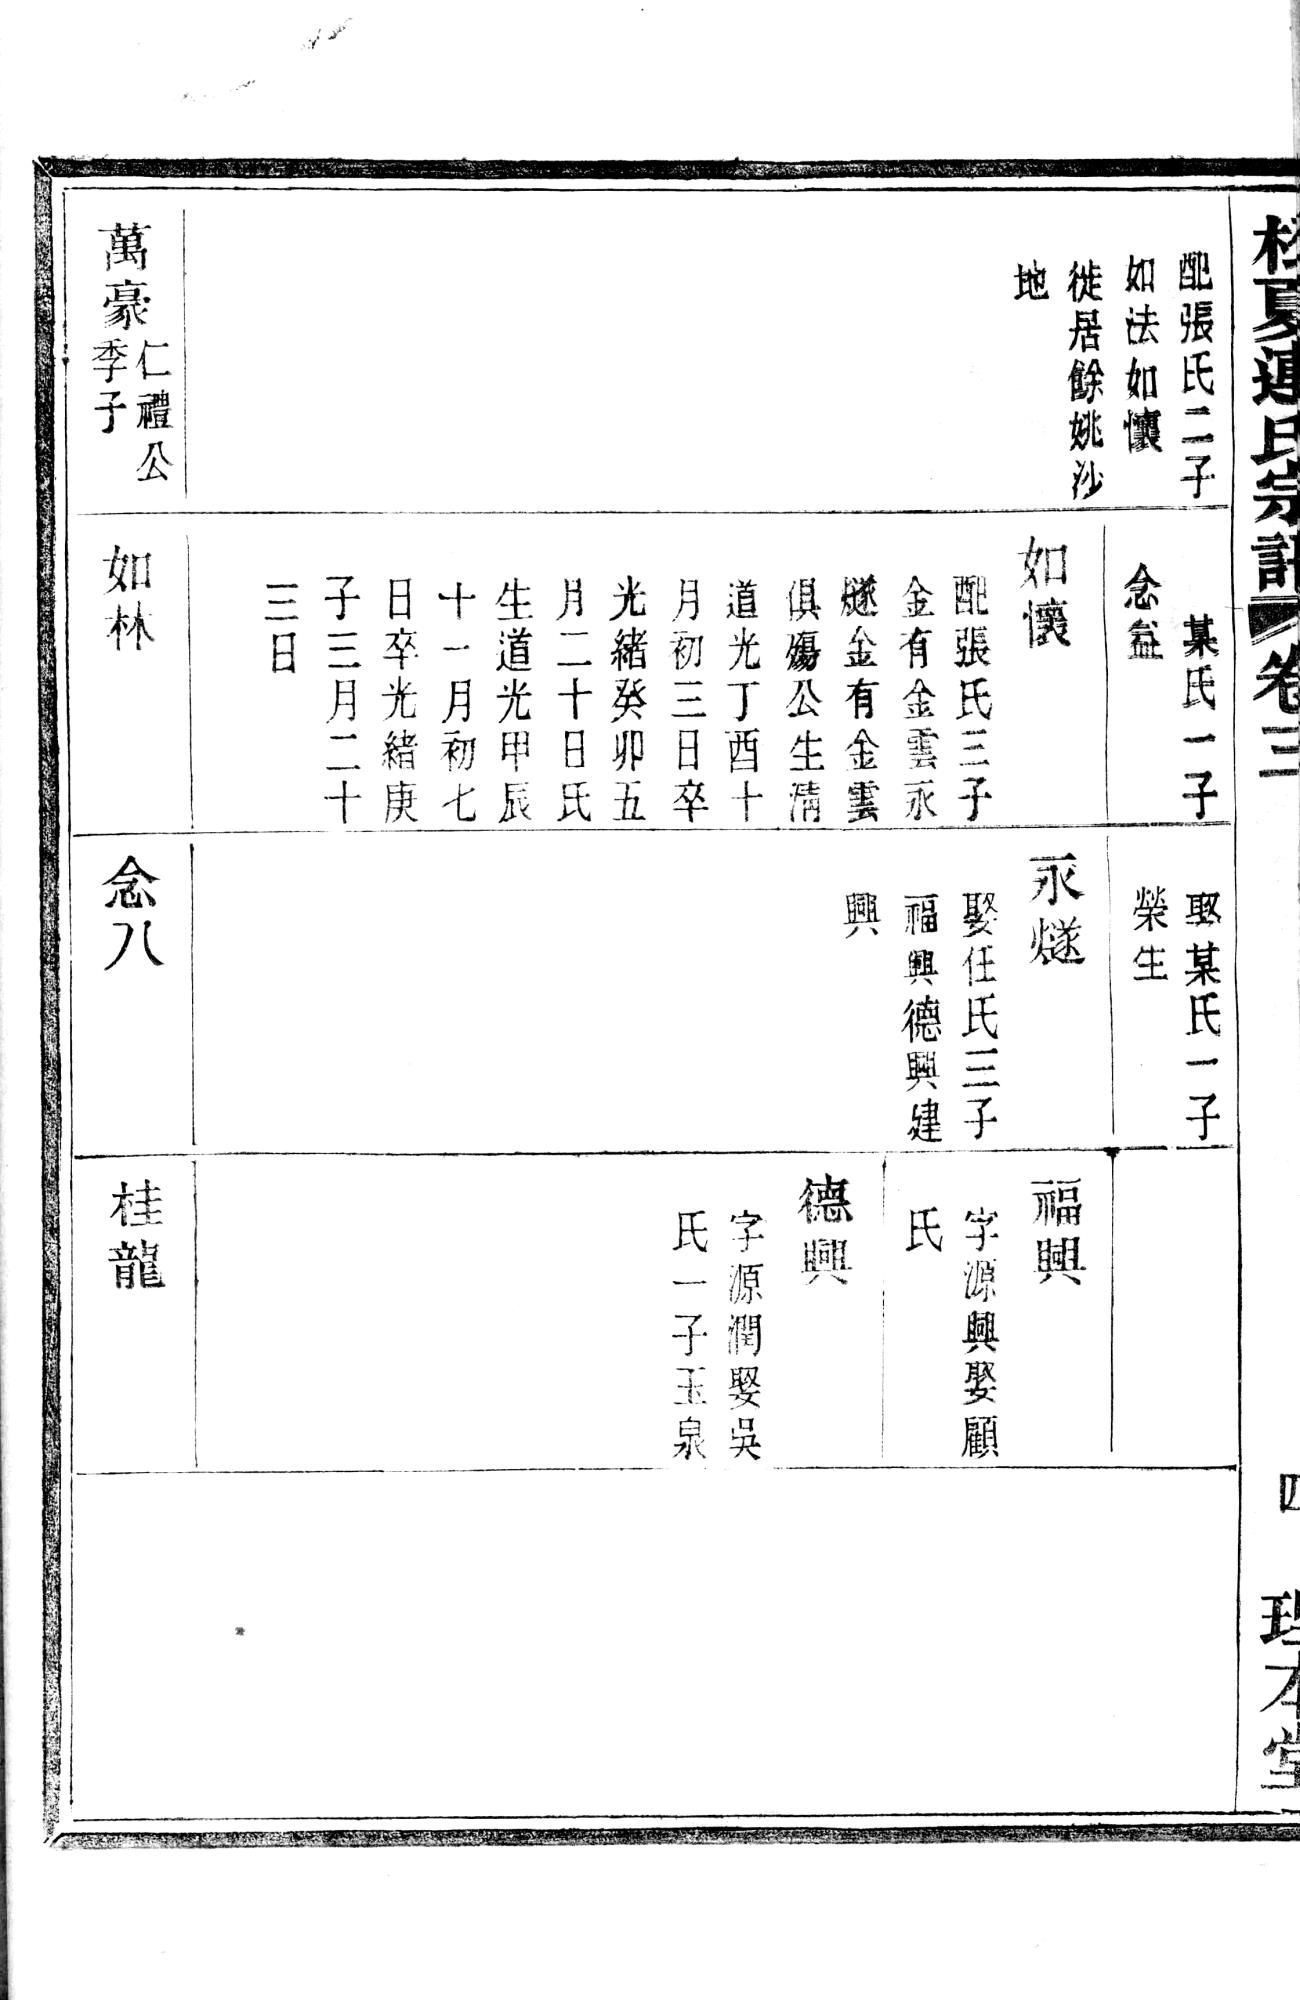 松夏連氏宗譜 卷三
四
理本堂
配張氏二子
如法如懷
徙居餘姚沙
地
萬豪 仁禮公
季子
某氏一子
念益
如懷
配張氏三子
金有金雲永
燧金有金雲
俱殤公生清
道光丁酉十
月初三日卒
光緒癸卯五
月二十日氏
生道光甲辰
十一月初七
日卒光緒庚
子三月二十
三日
如林
娶某氏一子
榮生
永燧
娶任氏三子
福興德興建
興
念八
福興
字源興娶顧
氏
德興
字源潤娶吳
氏一子玉泉
桂龍